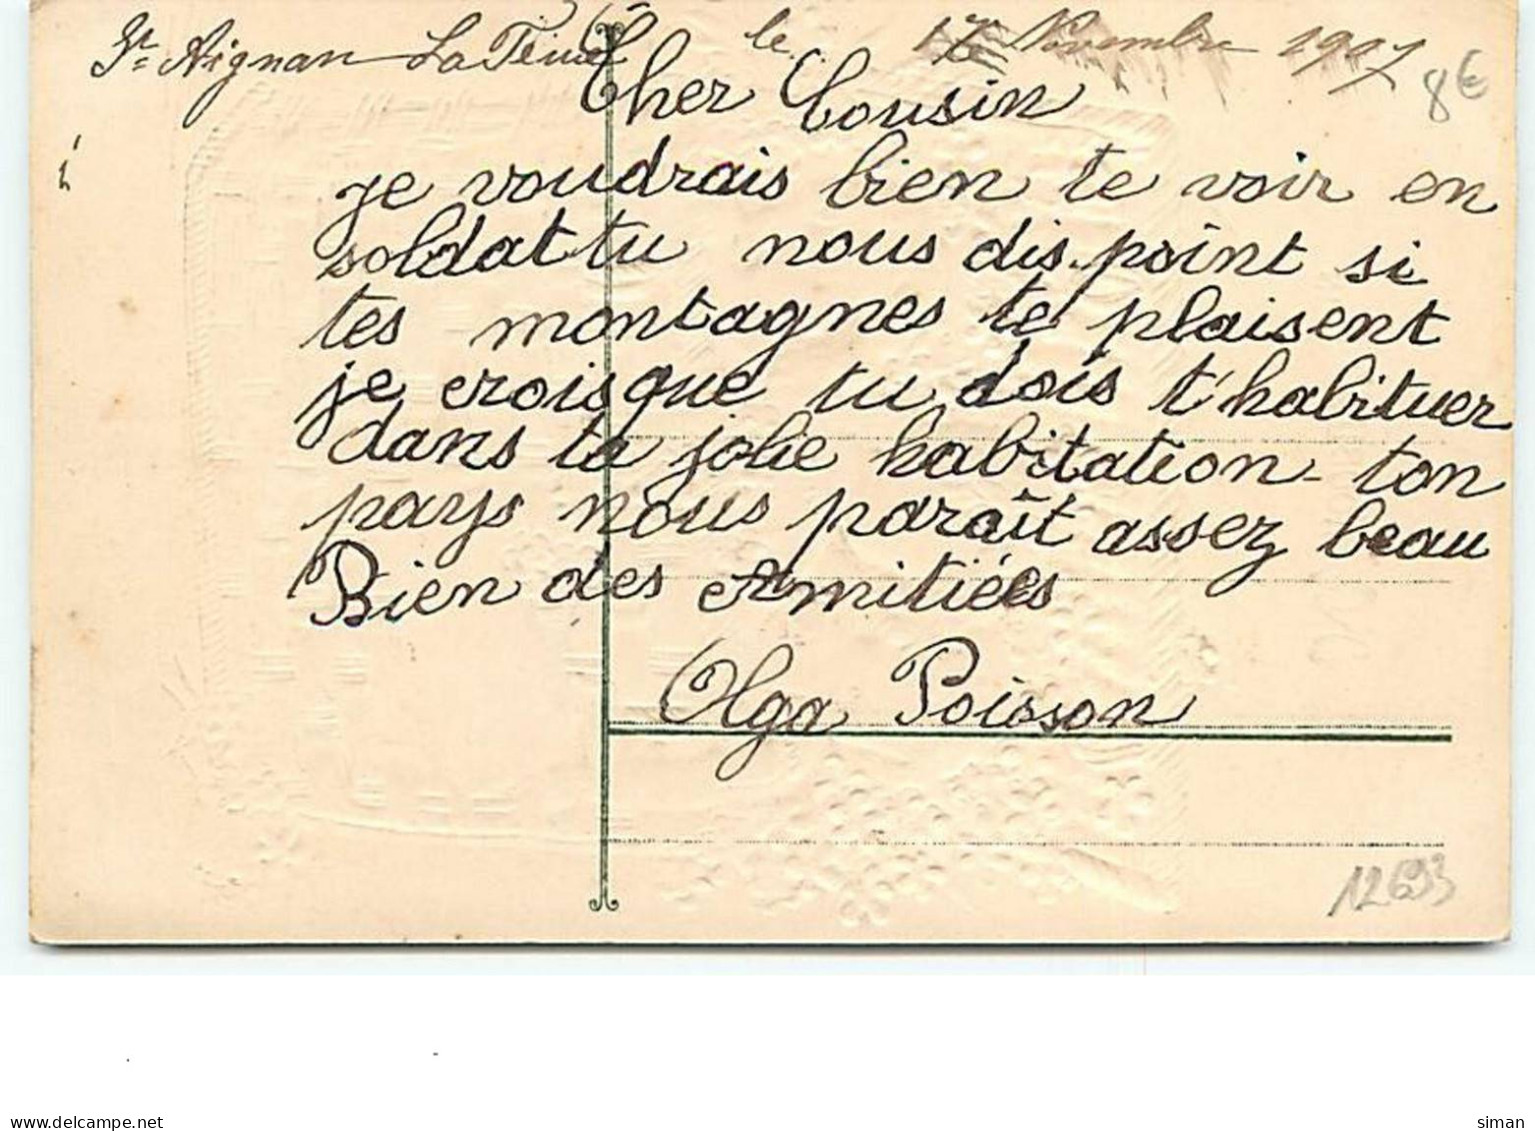 St Aignan La le 17 Novembre 1907
8€
Cher Cousin
je voudrais bien te voir en
soldat tu nous dis point si
tes montagnes te plaisent
je crois que tu dois t'habituer
dans ta jolie habitation - ton
pays nous paraît assez beau
Bien des Amitiées
Olga Poisson
12693
delcampe.net
siman